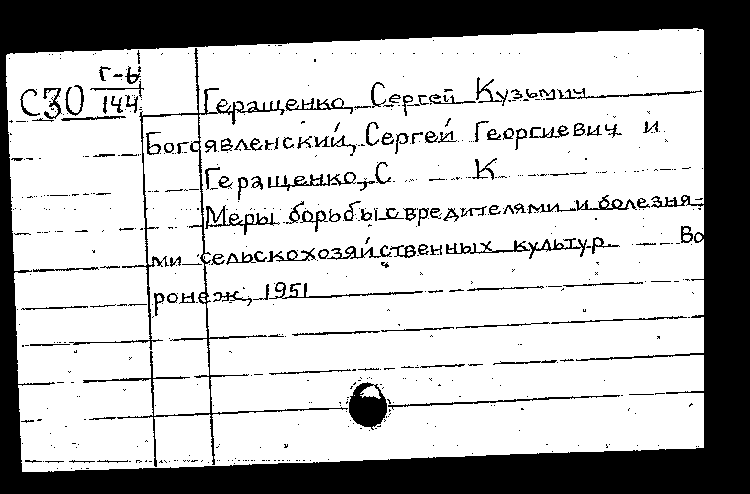 Г-6
С30 144
Геращенко, Сергей Кузьмич
Богоявленский, Сергей Георгиевич и
Геращенко, С К
Меры борьбы с вредителями и болезня-
ми сельскохозяйственных культур. Во
ронеж, 1951